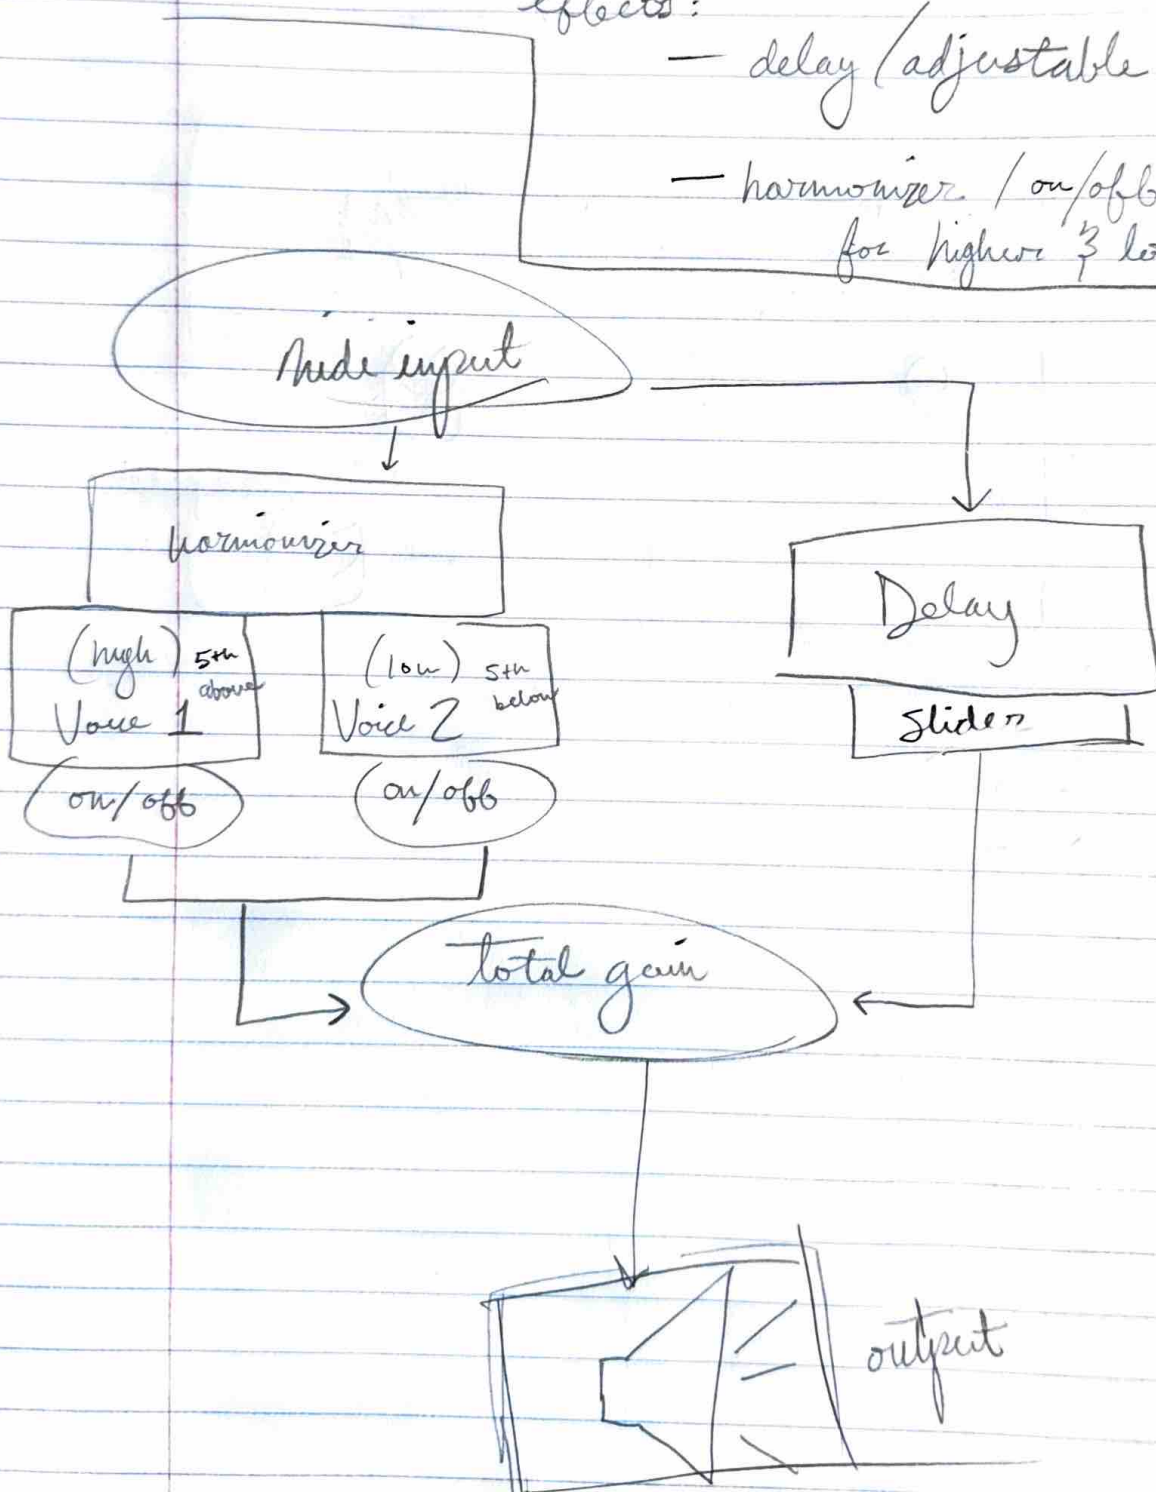 effects:
— delay / adjustable
— harmonizer / on/off
for higher & lo
midi input
harmonizer
(high) 5th above
Voice 1
on/off
(low) 5th below
Voice 2
on/off
Delay
Slider
total gain
output